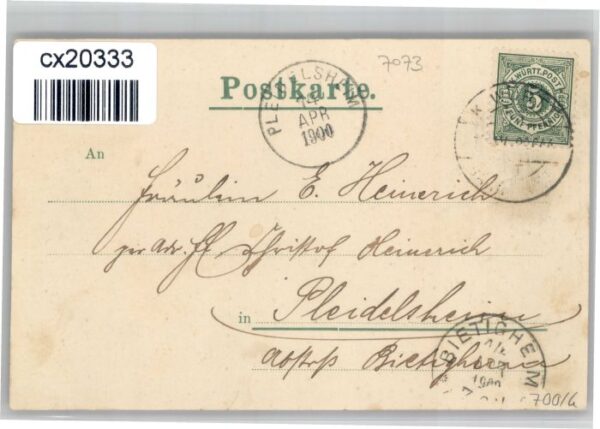 cx20333
7073
Postkarte.
PLEIDELSHEIM
14
APR
1900
K. WÜRTT. POST
5
FÜNF PFENNIG
An
Fräulein E. Heinerich
per adr. H. Christof Heinerich
in Pleidelsheim
Bietigheim
BIETIGHEIM
700/6